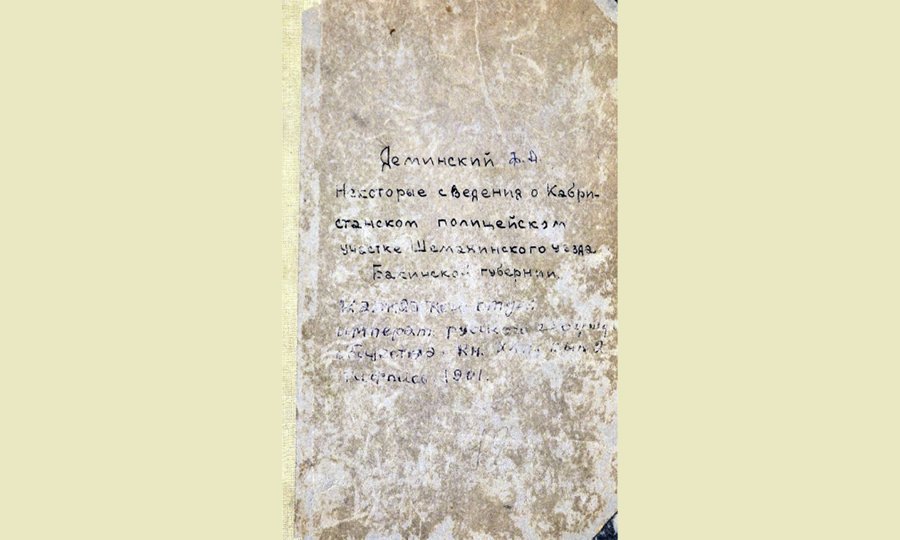 Деминский Ф.А.
Некоторые сведения о Кабри-
станском полицейском
участке Шемахинского уезда
Бакинской губернии.
император русского
общества кн.
Тифлис 1901.